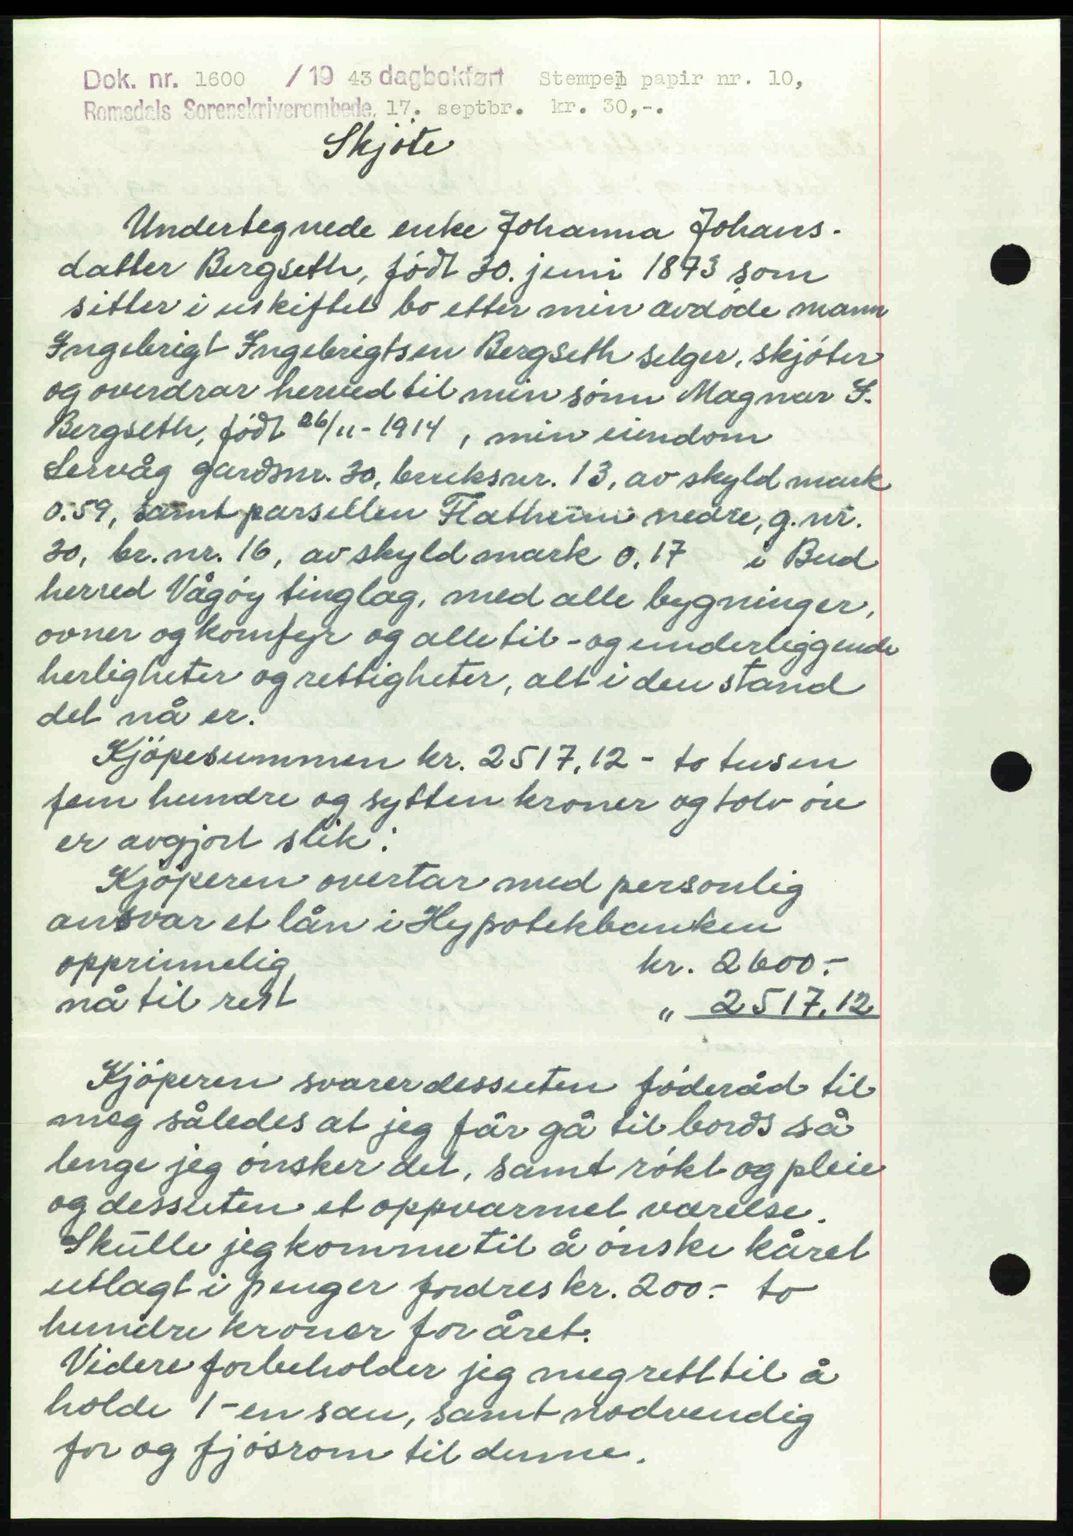 Dok. nr. 1600 /19 43 dagbokført Stempel papir nr. 10,
Romsdals Sorenskriverembede, 17. septbr. kr. 30,-.
Skjöte
Undertegnede enke Johanna Johans-
datter Bergseth, født 30. juni 1873 som
sitter i uskiftet bo etter min avdöde mann
Ingebrigt Ingebrigtsen Bergseth selger, skjöter
og overdrar herved til min sönn Magnar I.
Bergseth, født 26/11-1914, min eiendom
Lervåg gardsnr. 30, bruksnr. 13, av skyld mark
0.59, samt parsellen Flatheim nedre, g.nr.
30, br.nr. 16, av skyld mark 0,17 i Bud
herred Vågöy tinglag, med alle bygninger,
ovner og komfyr og alle til- og underliggende
herligheter og rettigheter, alt i den stand
det nå er.
Kjöpesummen kr. 2517,12 - to tusen
fem hundre og sytten kroner og tolv öre
er avgjort slik:
Kjöperen overtar med personlig
ansvar et lån i Hypotekbanken
opprinnelig kr. 2600.-
nå til rest " 2517,12
Kjöperen svarer dessuten föderåd til
meg således at jeg får gå til bords så
lenge jeg önsker det, samt rökt og pleie
og dessuten et oppvarmet værelse.
Skulle jeg komme til å önske kåret
utlagt i penger fordres kr. 200.- to
hundre kroner for året.
Videre forbeholder jeg meg rett til å
holde 1-en sau, samt nödvendig
for og fjösrom til denne.